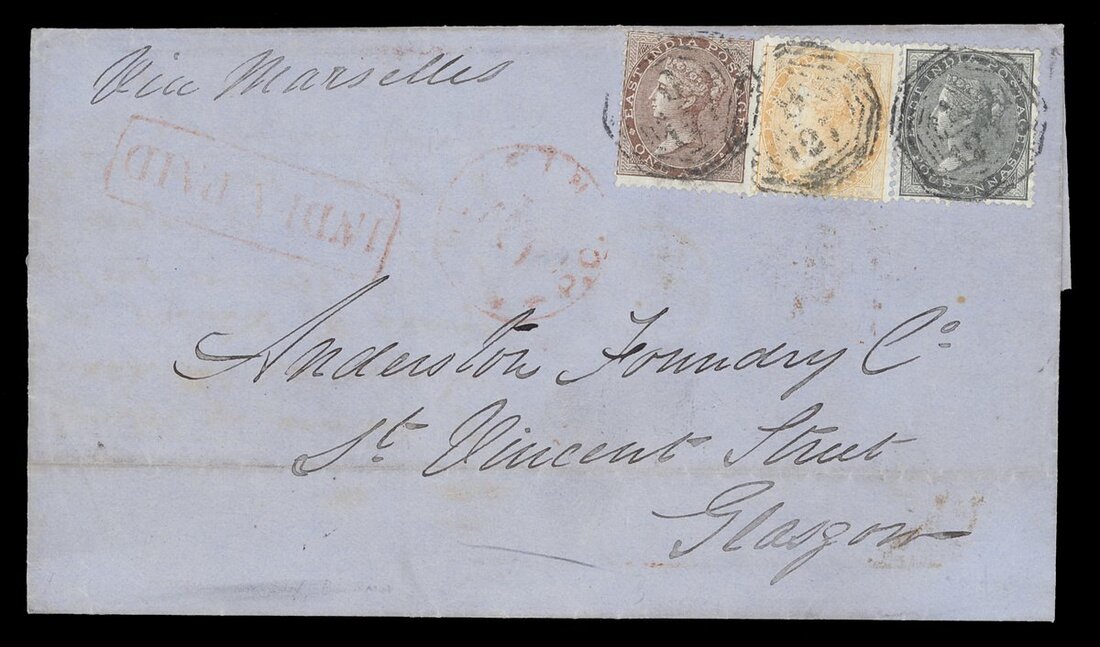 Via Marselles
INDIA PAID
EAST INDIA POSTAGE
ONE
EAST INDIA POSTAGE
FOUR ANNAS
Anderston Foundry Co
St. Vincent Street
Glasgow